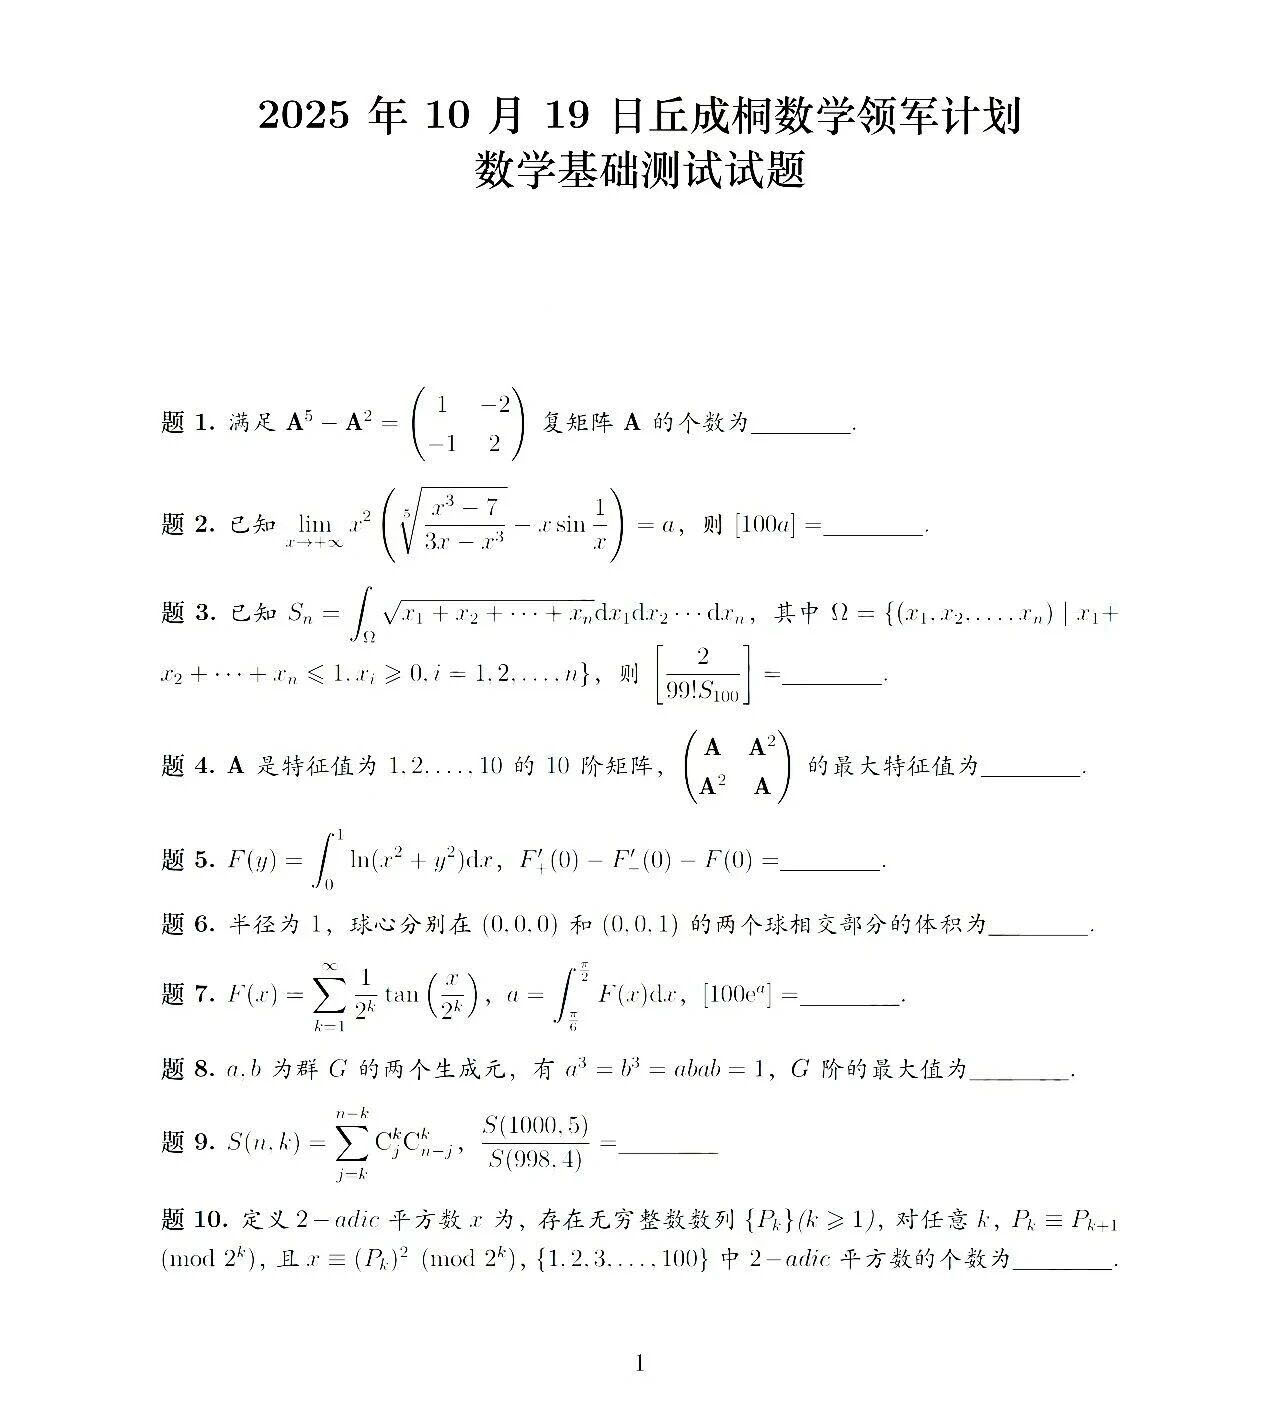 2025 年 10 月 19 日丘成桐数学领军计划
数学基础测试试题
题 1. 满足 A⁵ − A² = \begin{pmatrix} 1 & -2 \\ -1 & 2 \end{pmatrix} 复矩阵 A 的个数为________.
题 2. 已知 \lim_{x→+∞} x² ( \sqrt[5]{\frac{x³ − 7}{3x − x³}} − x sin \frac{1}{x} ) = a, 则 [100a] =________.
题 3. 已知 Sₙ = ∫_Ω \sqrt{x₁ + x₂ + ⋯ + xₙ}dx₁dx₂⋯dxₙ, 其中 Ω = {(x₁, x₂, ..., xₙ) | x₁+
x₂ + ⋯ + xₙ ⩽ 1, xᵢ ⩾ 0, i = 1, 2, ..., n}, 则 [ \frac{2}{99!S₁₀₀} ] =________.
题 4. A 是特征值为 1, 2, ..., 10 的 10 阶矩阵, \begin{pmatrix} A & A² \\ A² & A \end{pmatrix} 的最大特征值为________.
题 5. F(y) = ∫_0^1 ln(x² + y²)dx, F′₊(0) − F′₋(0) − F(0) =________.
题 6. 半径为 1, 球心分别在 (0, 0, 0) 和 (0, 0, 1) 的两个球相交部分的体积为________.
题 7. F(x) = \sum_{k=1}^{∞} \frac{1}{2^k} tan ( \frac{x}{2^k} ), a = ∫_{\frac{π}{6}}^{\frac{π}{2}} F(x)dx, [100e^a] =________.
题 8. a, b 为群 G 的两个生成元, 有 a³ = b³ = abab = 1, G 阶的最大值为________.
题 9. S(n, k) = \sum_{j=k}^{n−k} C_j^k C_{n−j}^k, \frac{S(1000, 5)}{S(998, 4)} =________
题 10. 定义 2−adic 平方数 x 为, 存在无穷整数数列 {P_k}(k ⩾ 1), 对任意 k, P_k ≡ P_{k+1}
(mod 2^k), 且 x ≡ (P_k)² (mod 2^k), {1, 2, 3, ..., 100} 中 2−adic 平方数的个数为________.
1